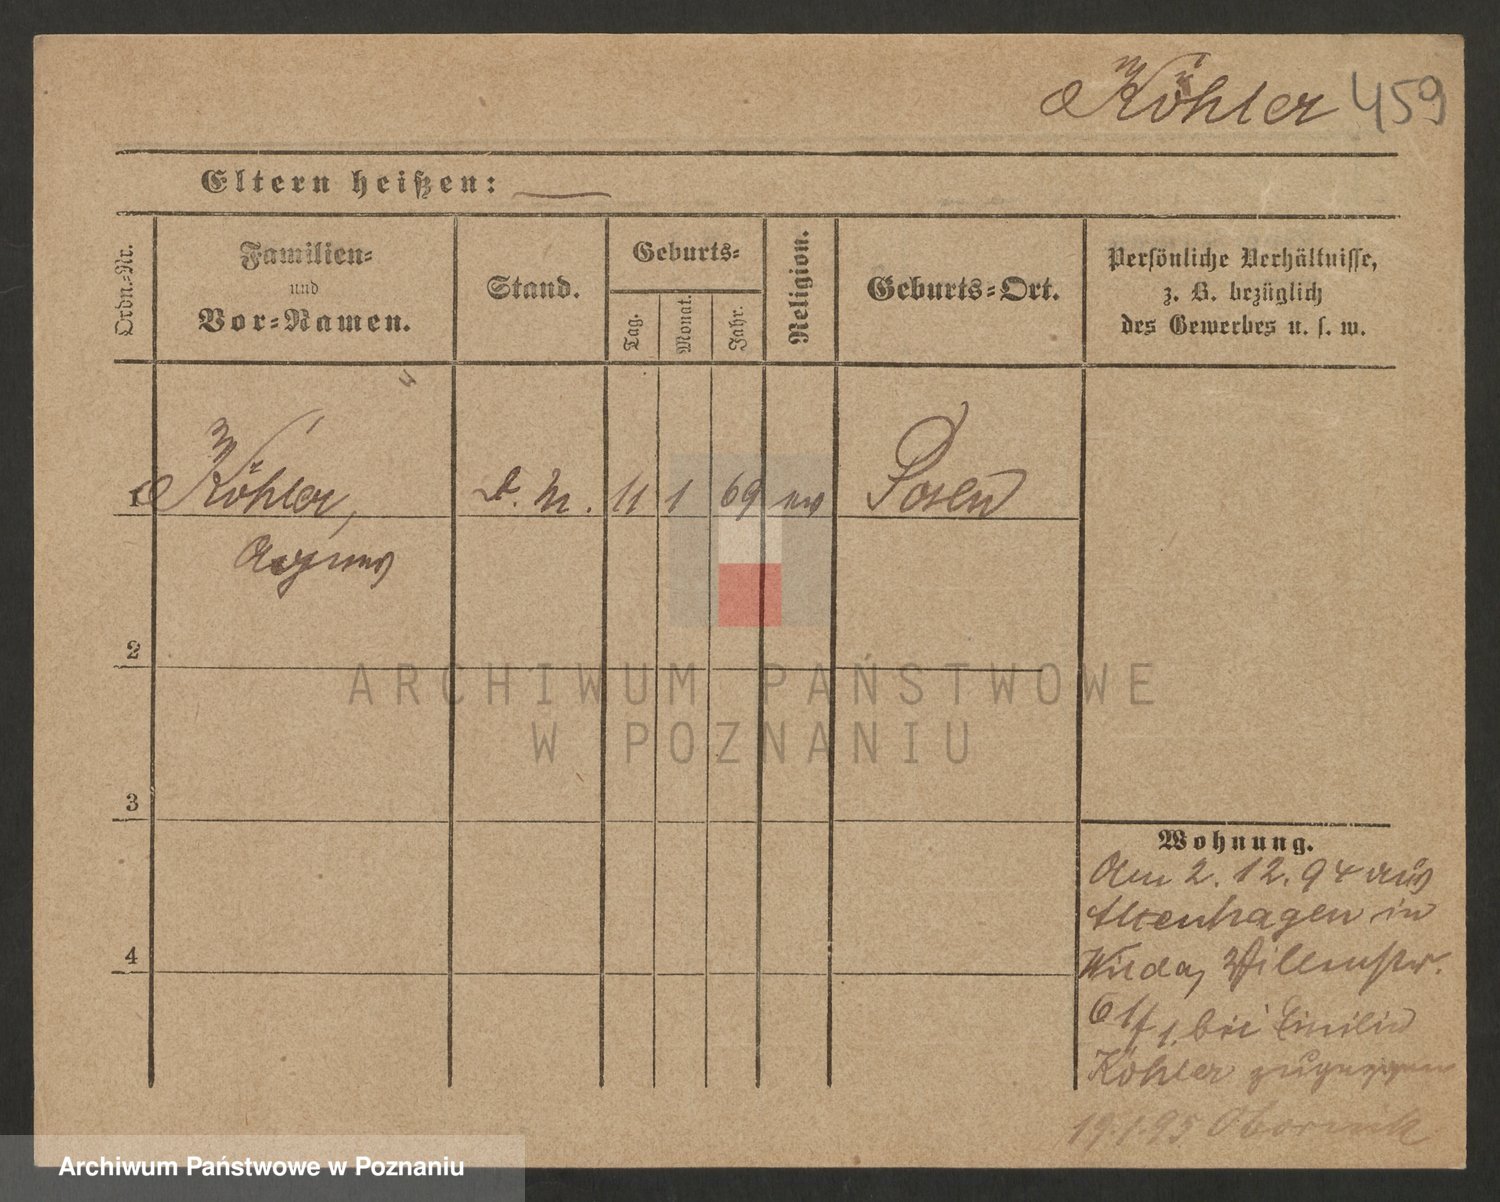 Köhler 459
Eltern heißen: —
Ordn.-Nr.
Familien-
und
Vor-Namen.
Stand.
Geburts-
Tag.
Monat.
Jahr.
Religion.
Geburts-Ort.
Persönliche Verhältnisse,
z. B. bezüglich
des Gewerbes u. s. w.
1 Köhler, D. M. 11 1 69 ev Posen
Agnes
2
3
4
Wohnung.
Am 2. 12. 94 aus
Altenhagen in
Wilda, Villenstr.
6 I/ 1. bei Emilie
Köhler zugezogen
19.1.95 Obornik
ARCHIWUM PAŃSTWOWE
W POZNANIU
Archiwum Państwowe w Poznaniu